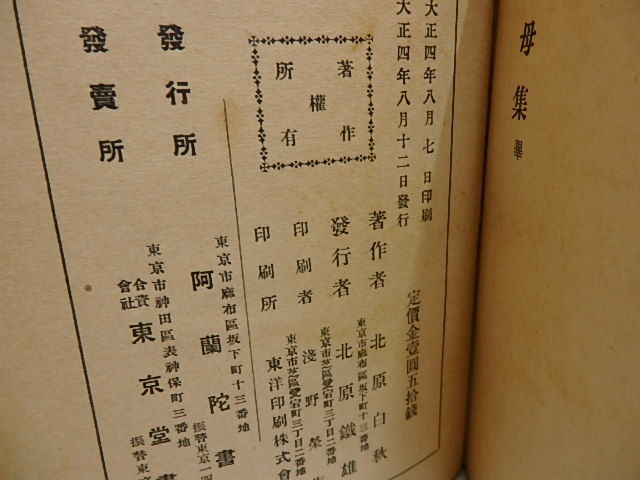 母集 畢
大正四年八月七日印刷
大正四年八月十二日發行
定價金壹圓五拾錢
著作
權
所有
著作者
東京市麻布區坂下町十三番地
北原白秋
發行者
東京市芝區愛宕町三丁目二番地
北原鐵雄
印刷者
東京市芝區愛宕町三丁目二番地
淺野
印刷所
東洋印刷株式會
發行所
東京市麻布區坂下町十三番地
阿蘭陀書
振替東京一四
發賣所
東京市神田區表神保町三番地
合資會社
東京堂書
振替東京